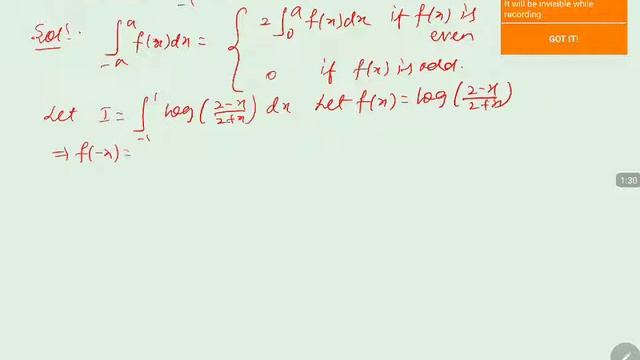 Sol:
∫_{-a}^{a} f(x)dx = { 2∫_0^a f(x)dx if f(x) is even
0 if f(x) is odd.
Let I = ∫_{-1}^{1} log(\frac{2-x}{2+x}) dx Let f(x) = log(\frac{2-x}{2+x})
⇒ f(-x) =
It will be invisible while
recording
GOT IT!
1:30